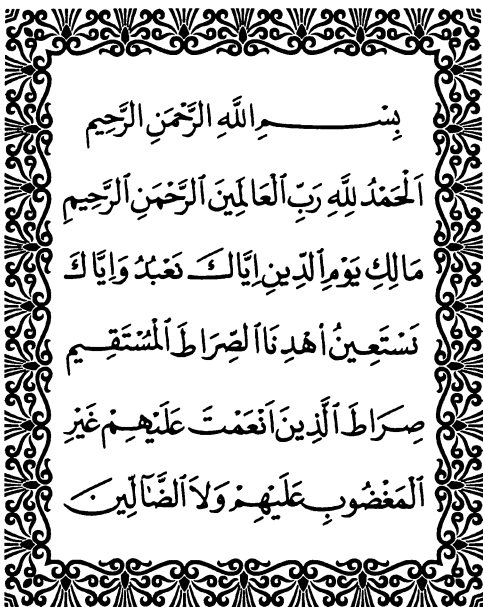 بِسْـــــمِ اللَّهِ الرَّحْمَنِ الرَّحِيمِ
اَلْحَمْدُ لِلَّهِ رَبِّ ٱلْعَالَمِينَ ٱلرَّحْمَنِ ٱلرَّحِيمِ
مَالِكِ يَوْمِ ٱلدِّينِ اِيَّاكَ نَعْبُدُ وَاِيَّاكَ
نَسْتَعِينُ اُهْدِنَا ٱلصِّرَاطَ ٱلْمُسْتَقِـيم
صِرَاطَ ٱلَّذِينَ اَنْعَمْتَ عَلَيْهِمْ غَيْرِ
ٱلْمَغْضُوبِ عَلَيْهِمْ وَلاَ ٱلضَّآلِّينَ